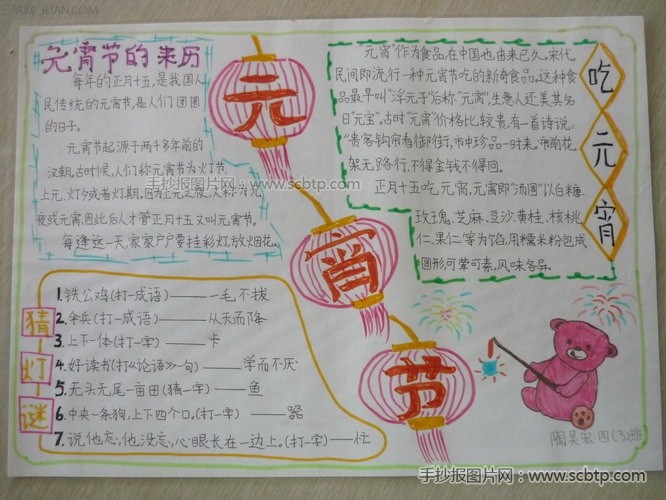 三联网 3LIAN.COM
元宵节的来历
每年的正月十五,是我国人
民传统的元宵节,是人们团圆
的日子。
元宵节起源于两千多年前的
汉朝,古时候,人们称元宵节为灯节、
上元、灯夕或者灯期,因为正元之夜,又称为元
夜或元宵,因此后人才管正月十五又叫元宵节。
每逢这一天,家家户户要挂彩灯,放烟花。
元
宵
节
吃元宵
元宵"作为食品,在中国也由来已久。宋代,
民间即流行一种元宵节吃的新奇食品。这种食
品最早叫"浮元子"后称"元宵",生意人还美其名
曰"元宝"。古时"元宵"价格比较贵,有一首诗说:
"贵客钩帘看御街,市中珍品一时来。帘前花
架无路行,不得金钱不得回。
正月十五吃,元宵,元宵即"汤圆"以白糖、
玫瑰,芝麻、豆沙,黄桂、核桃
仁、果仁等为馅,用糯米粉包成
圆形,可荤可素,风味各异。
手抄报图片网 - www.scbtp.com
猜灯谜
1.铁公鸡(打一成语)——一毛不拔
2.伞兵(打一成语)——从天而降
3.上下一体(打一字)——卡
4.好读书(打《论语》一句)——学而不厌
5.无头无尾一亩田(猜一字)——鱼
6.中央一条狗,上下四个口。(打一字)——器
7.说他忘,他没忘,心眼长在一边上。(打一字)——忙
四(3)班
手抄报图片网:www.scbtp.com